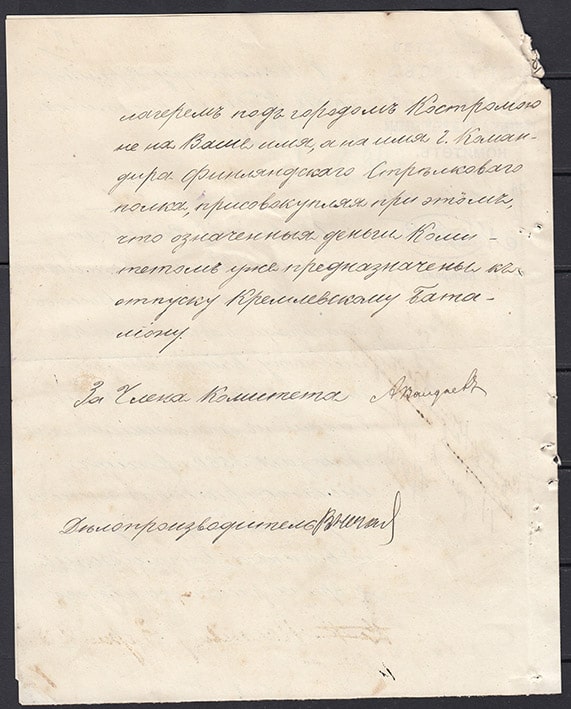 лагеремъ подъ городомъ Костромою
не на Ваше имя, а на имя г. Коман-
дира Финляндскаго Стрѣлковаго
полка, присовокупляя при этомъ,
что означенныя деньги Коми-
тетомъ уже предназначены къ
отпуску Кремлевскому Бата-
ліону.
За Члена Комитета
Дѣлопроизводитель